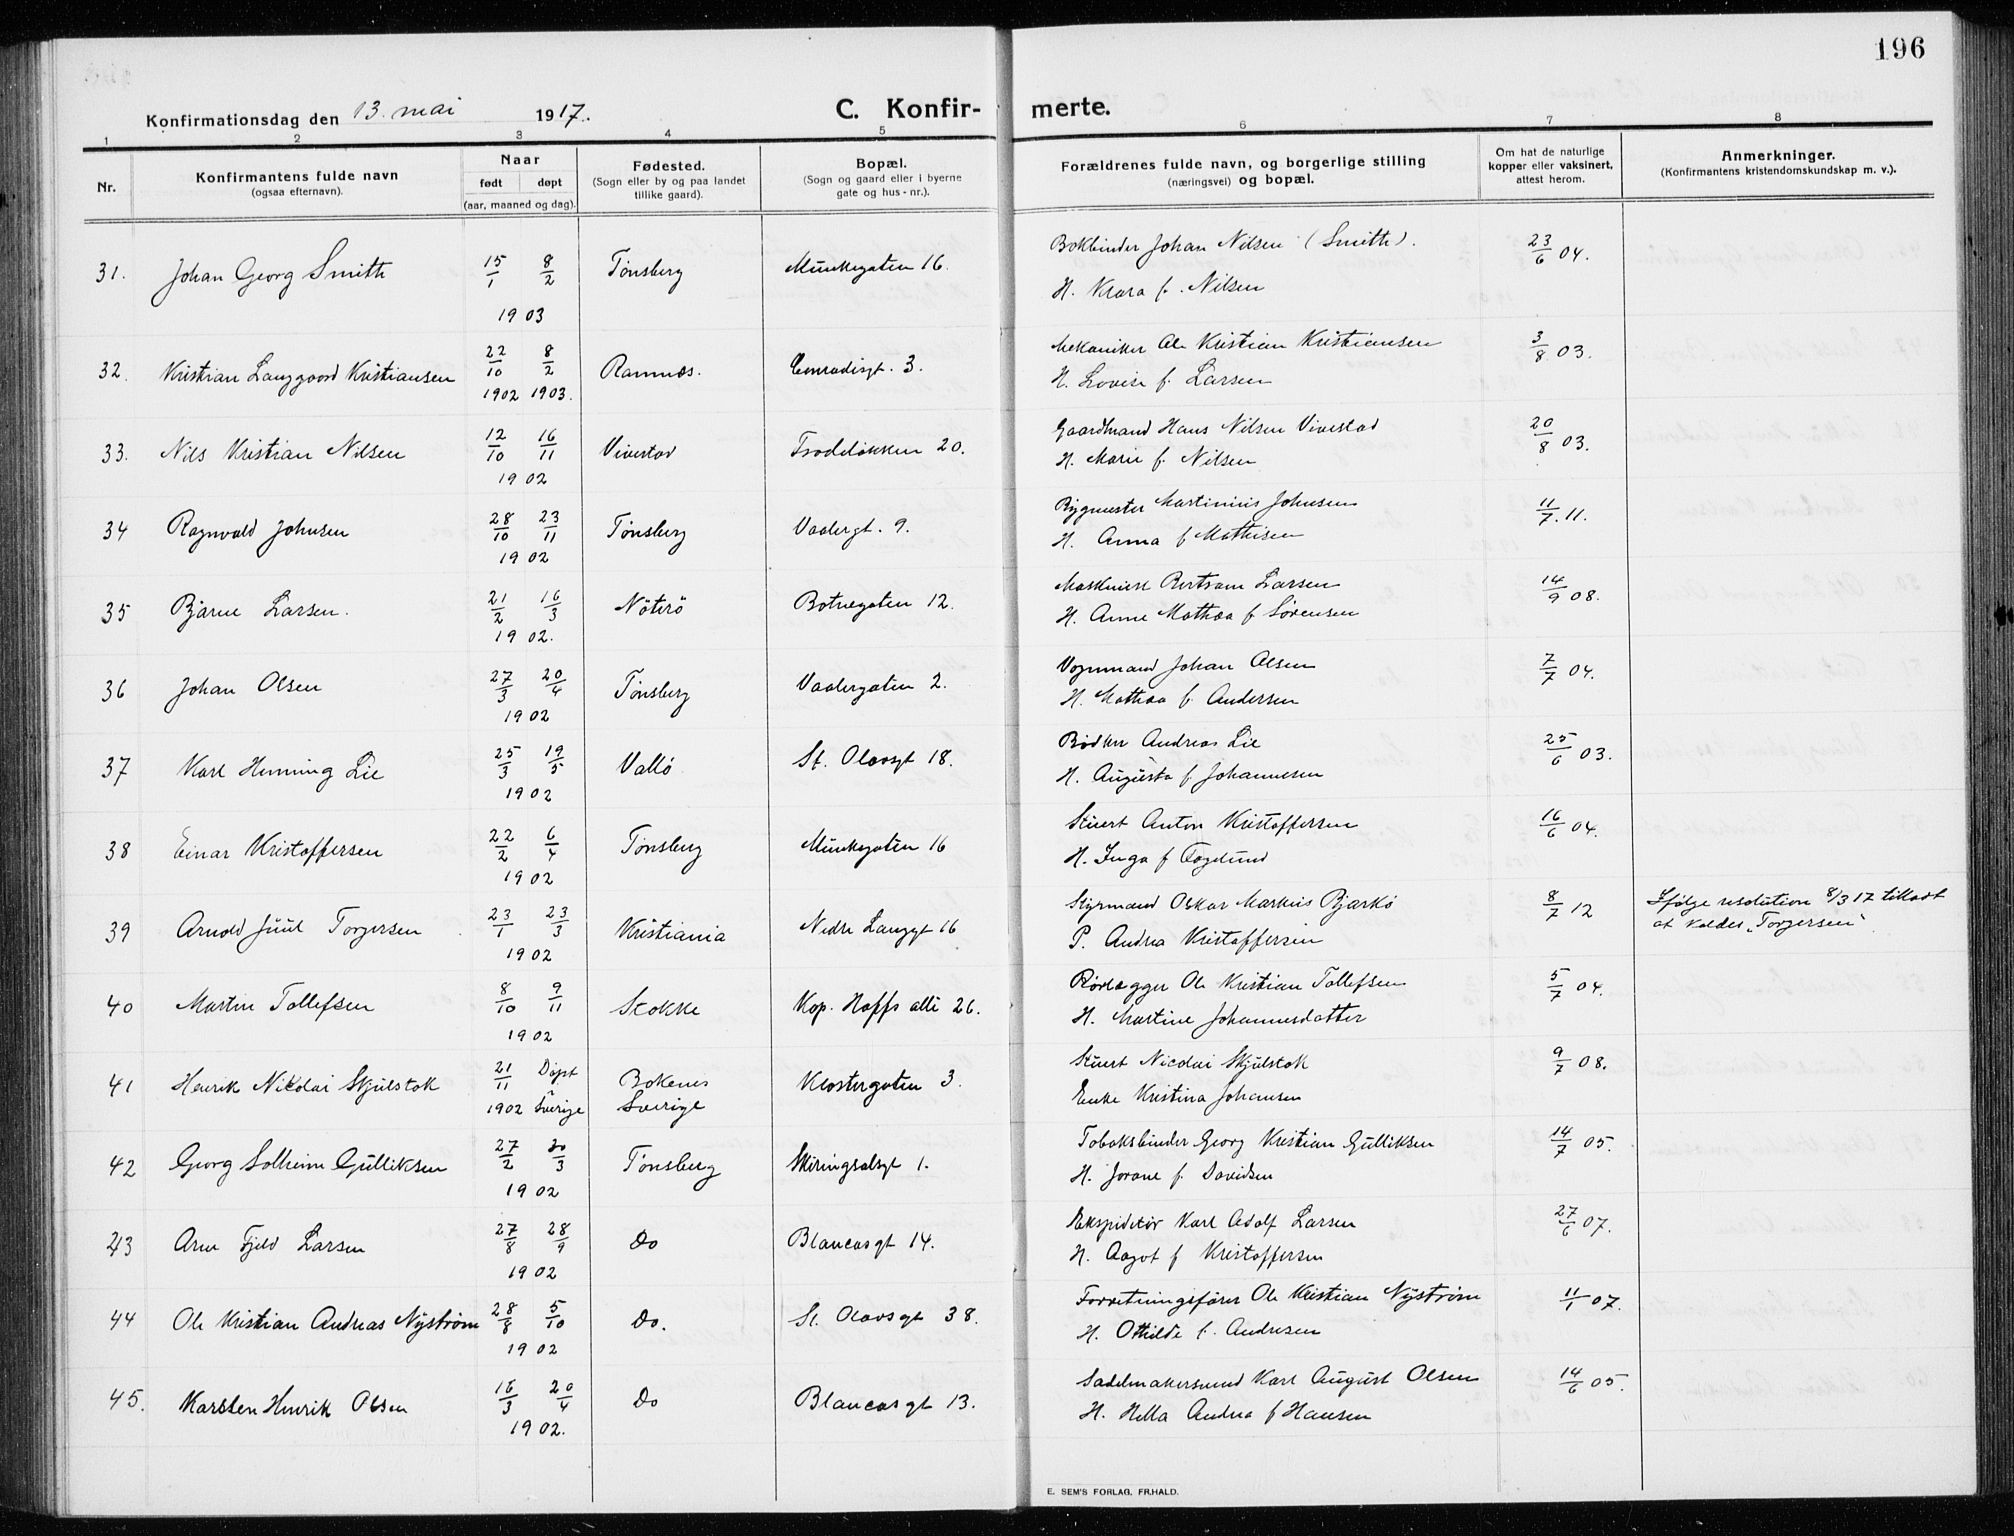 196
Konfirmationsdag den 13. mai 1917.
C. Konfir- merte.
1 2 3 4 5 6 7 8
Nr.
Konfirmantens fulde navn
(ogsaa efternavn).
Naar
født døpt
(aar, maaned og dag).
Fødested.
(Sogn eller by og paa landet
tillike gaard).
Bopæl.
(Sogn og gaard eller i byerne
gate og hus-nr.).
Forældrenes fulde navn, og borgerlige stilling
(næringsvei) og bopæl.
Om hat de naturlige
kopper eller vaksinert,
attest herom.
Anmerkninger.
(Konfirmantens kristendomskundskap m. v.).
31. Johan Georg Smith 15/1 8/2 Tønsberg Munkegaten 16. Bokbinder Johan Nilsen (Smith). 23/6 04.
1903 H. Klara f. Nilsen
32. Kristian Langgaard Kristiansen 22/10 8/2 Ramnæs. Conradisgt. 3. Mekaniker Ole Kristian Kristiansen 3/8 03.
1902 1903. H. Lovise f. Larsen
33. Nils Kristian Nilsen 12/10 16/11 Vivestad Træleløkken 20. Gaardmand Hans Nilsen Vivestad 20/8 03.
1902 H. Marie f. Nilsen
34 Ragnvald Johnsen 28/10 23/11 Tønsberg Vaalergt. 9. Bygmester Martinius Johnsen 11/7. 11.
1902 H. Anna f Mathisen
35 Bjarne Larsen. 21/2 16/3 Nöterö Botnegaten 12. Maskinist Bertram Larsen 14/9 08.
1902. H. Anne Mathea f Sørensen
36 Johan Olsen 27/3 20/4 Tønsberg Vaalergaten 2. Vognmand Johan Olsen 7/7 04.
1902 H. Mathea f. Andersen
37 Karl Henning Lie 25/3 19/5 Vallö St. Olavsgt 18. Bødker Andreas Lie 25/6 03.
1902 H. Augusta f. Johannesen
38 Einar Kristoffersen 22/2 6/4 Tønsberg Munkegaten 16 Stuert Anton Kristoffersen 16/6 04.
1902 H. Inga f Fagelund
39 Arnold Juul Torgersen 23/1 23/3 Kristiania Nedre Langgt 16 Styrmand Oskar Markus Bjarkö 8/7 12 Ifølge resolution 8/3 17 tilladt
1902 P. Andrea Kristoffersen at kaldes „Torgersen“
40 Martin Tollefsen 8/10 9/11 Stokke Kap. Hoffs allé 26. Rørlægger Ole Kristian Tollefsen 5/7 04.
1902 H. Martine Johannesdatter
41 Henrik Nikolai Skjulstok 21/11 Døpt Bokenes Klostergaten 3. Stuert Nicolai Skjulstok 9/7 08.
1902 i Sverige Sverige Enke Kristina Johansen
42 Georg Solheim Gulliksen 27/2 30/3 Tønsberg Skiringsalsgt 1. Tobaksbinder Georg Kristian Gulliksen 14/7 05.
1902 H. Jorane f. Davidsen
43 Arne Fjeld Larsen 27/8 28/9 Do Blancasgt 14. Ekspeditør Karl Adolf Larsen 27/6 07.
1902 H. Aagot f Kristoffersen
44 Ole Kristian Andreas Nyström 28/8 5/10 Do. St. Olavsgt 38. Forretningsfører Ole Kristian Nyström 11/1 07.
1902 H. Othilde f. Andresen
45. Karsten Henrik Olsen 16/3 20/4 Do Blancasgt 13. Sadelmakersvend Karl August Olsen 14/6 05.
1902. H. Hella Andrea f Hansen
E. SEM'S FORLAG. FR.HALD.